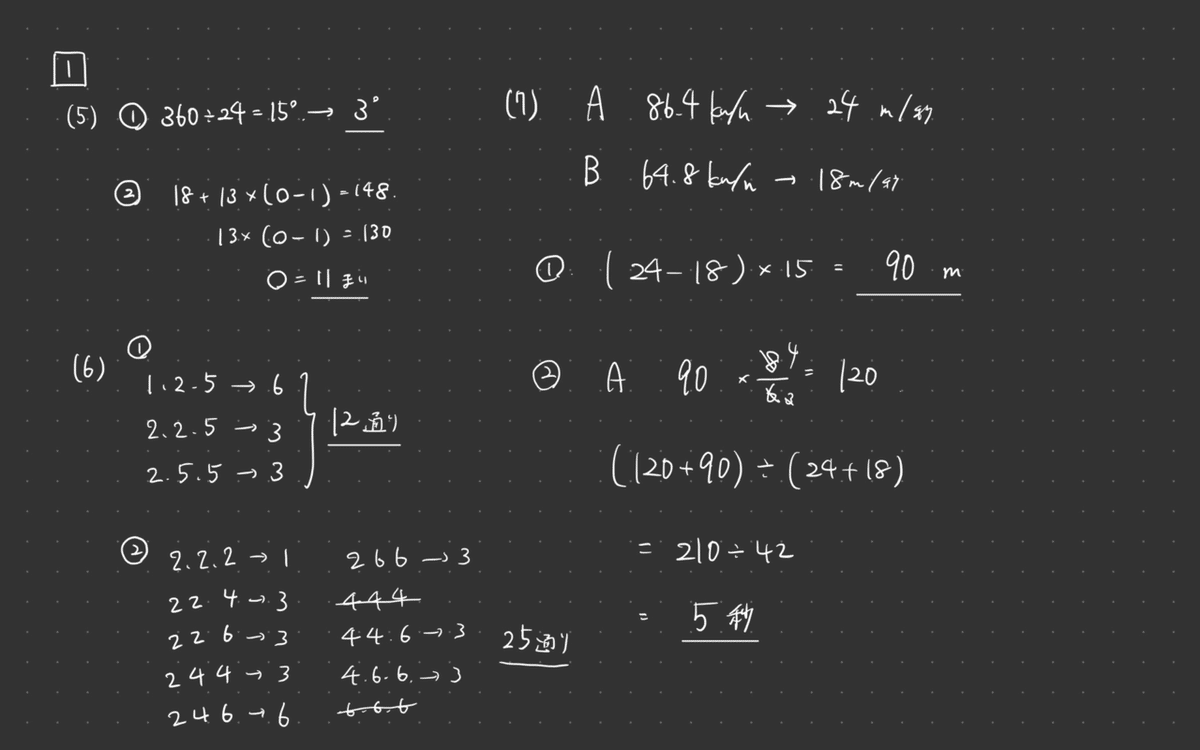 1
(5) ① 360÷24=15° → 3°
② 18+13×(○-1)=148.
13×(○-1)=130
○=11
(6) ①
1.2.5 → 6
2.2.5 → 3
2.5.5 → 3
12通り
② 2.2.2 → 1
2 2 4 → 3
2 2 6 → 3
2 4 4 → 3
2 4 6 → 6
2 6 6 → 3
4 4 4
4 4 6 → 3
4.6.6. → 3
6.6.6
25通り
(7) A 86.4 km/h → 24 m/秒
B 64.8 km/h → 18m/秒
① (24-18)×15 = 90 m
② A 90 × 4/3 = 120
(120+90)÷(24+18)
= 210÷42
= 5秒